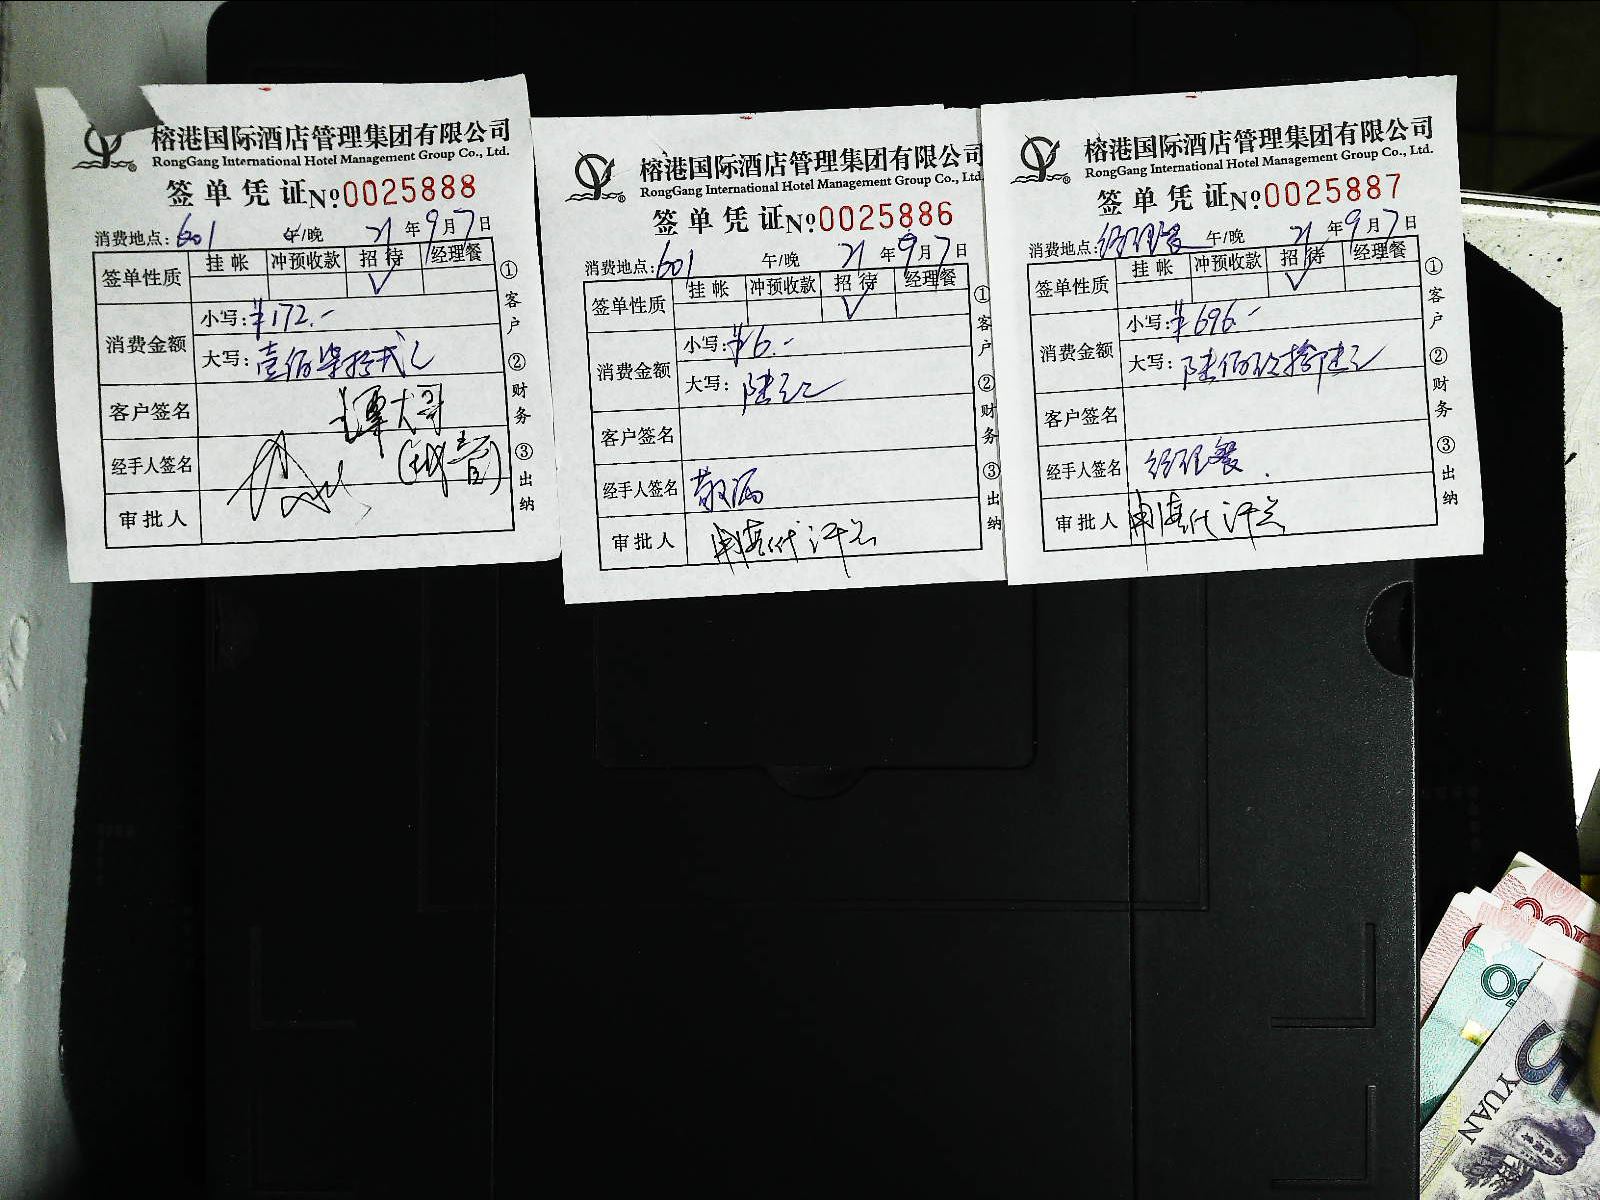 榕港国际酒店管理集团有限公司
RongGang International Hotel Management Group Co., Ltd.
签单凭证 №0025888
消费地点: 601 午/晚 21年9月7日
签单性质 挂帐 冲预收款 招待 经理餐
✓
消费金额 小写: ¥172.-
大写: 壹佰柒拾贰元
客户签名 谭大哥
经手人签名
审批人
①客户 ②财务 ③出纳
榕港国际酒店管理集团有限公司
RongGang International Hotel Management Group Co., Ltd.
签单凭证 №0025886
消费地点: 601 午/晚 21年9月7日
签单性质 挂帐 冲预收款 招待 经理餐
✓
消费金额 小写: ¥6.-
大写: 陆元
客户签名
经手人签名
审批人
①客户 ②财务 ③出纳
榕港国际酒店管理集团有限公司
RongGang International Hotel Management Group Co., Ltd.
签单凭证 №0025887
消费地点: 经理餐 午/晚 21年9月7日
签单性质 挂帐 冲预收款 招待 经理餐
✓
消费金额 小写: ¥696.-
大写: 陆佰玖拾陆元
客户签名
经手人签名 经理餐.
审批人
①客户 ②财务 ③出纳
5
YUAN